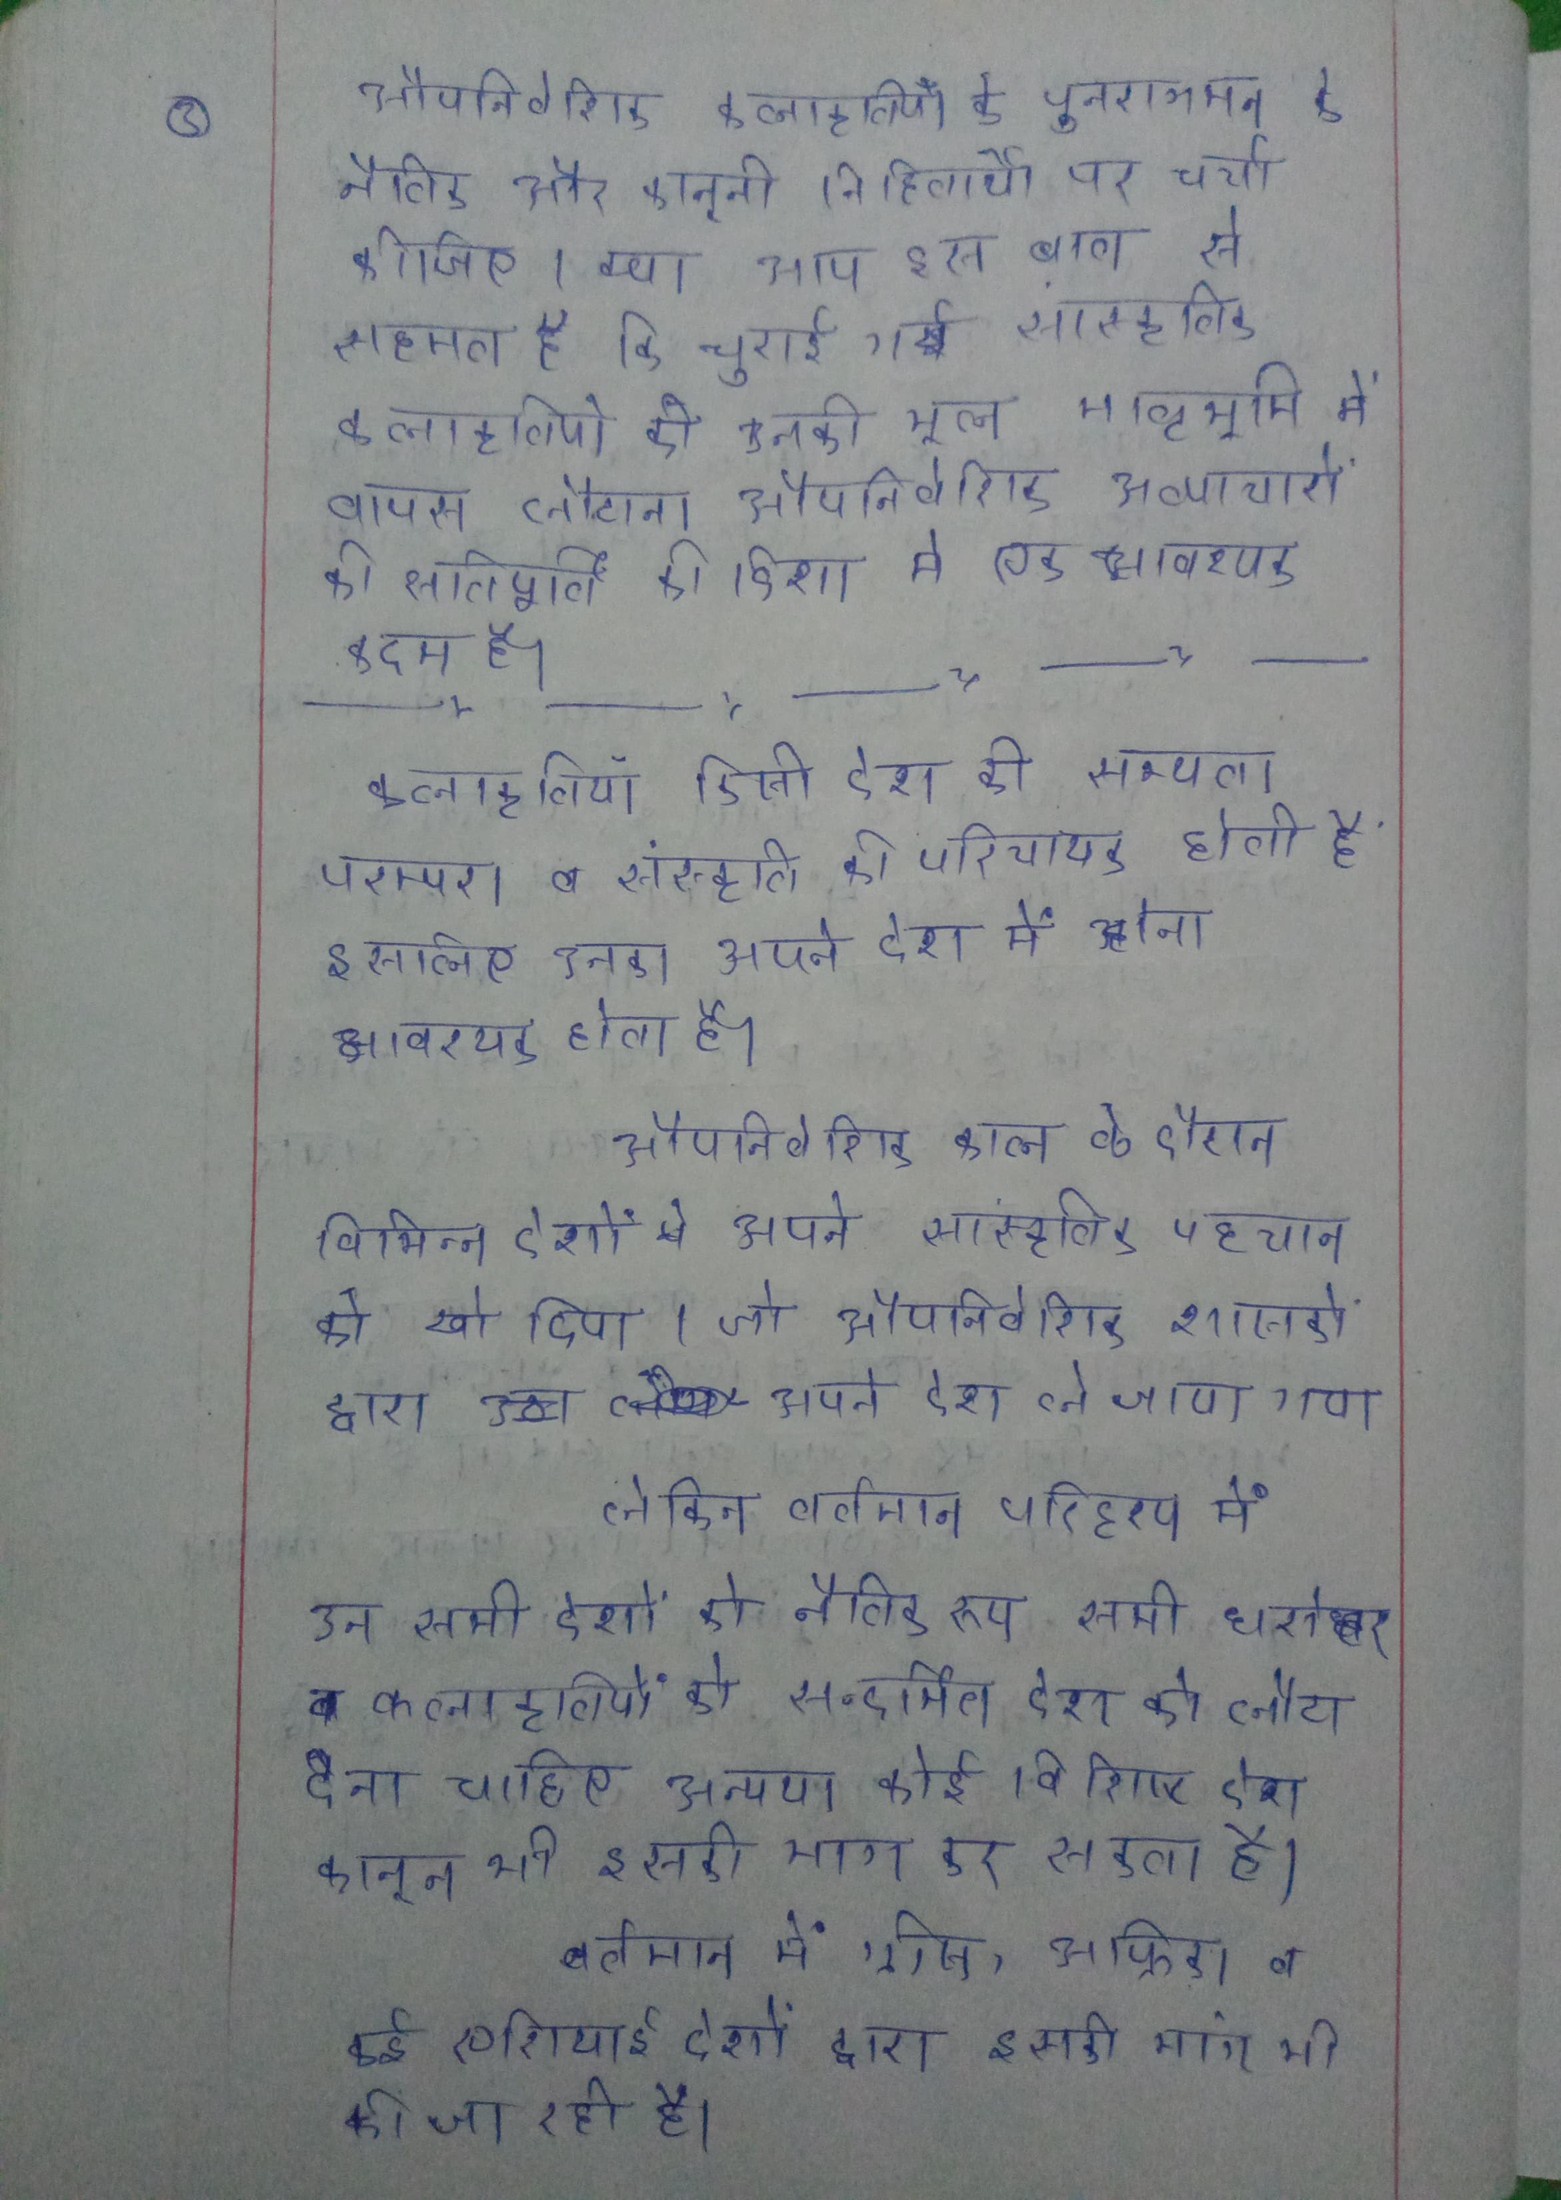 ③ औपनिवेशिक कलाकृतियों के पुनरागमन के
नैतिक और कानूनी निहितार्थों पर चर्चा
कीजिए । क्या आप इस बात से
सहमत है कि चुराई गई सांस्कृतिक
कलाकृतियो को उनकी मूल मातृभूमि में
वापस लौटाना औपनिवेशिक अत्याचारों
की क्षतिपूर्ति की दिशा मे एक आवश्यक
कदम है।
कलाकृतियाँ किसी देश की सभ्यता
परम्परा व संस्कृति की परिचायक होती हैं
इसलिए उनका अपने देश में होना
आवश्यक होता है।
औपनिवेशिक काल के दौरान
विभिन्न देशों ने अपने सांस्कृतिक पहचान
को खो दिया । जो औपनिवेशिक शासकों
द्वारा अपने देश ले जाया गया
लेकिन वर्तमान परिदृश्य में
उन सभी देशों को नैतिक रूप सभी धरोहर
व कलाकृतियों को सन्दर्भित देश को लौटा
देना चाहिए अन्यथा कोई विशिष्ट देश
कानून भी इसकी माग कर सकता है।
वर्तमान में अफ्रिका व
कई एशियाई देशों द्वारा इसकी मांग भी
की जा रही है।